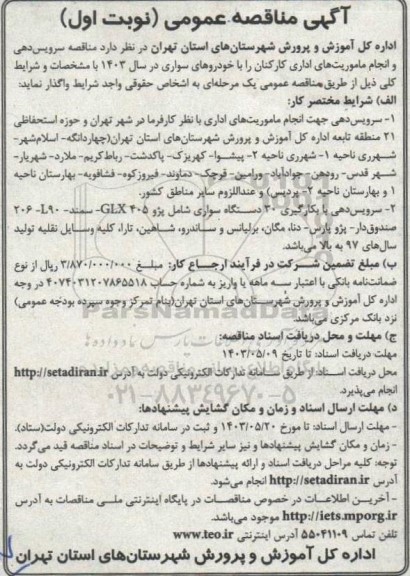 آگهی مناقصه عمومی (نوبت اول)
اداره کل آموزش و پرورش شهرستان‌های استان تهران در نظر دارد مناقصه سرویس‌دهی
و انجام ماموریت‌های اداری کارکنان را با خودروهای سواری در سال ۱۴۰۳ با مشخصات و شرایط
کلی ذیل از طریق مناقصه عمومی یک مرحله‌ای به اشخاص حقوقی واجد شرایط واگذار نماید:
الف) شرایط مختصر کار:
۱- سرویس‌دهی جهت انجام ماموریت‌های اداری با نظر کارفرما در شهر تهران و حوزه استحفاظی
۲۱ منطقه تابعه اداره کل آموزش و پرورش شهرستان‌های استان تهران(چهاردانگه- اسلام‌شهر-
شهرری ناحیه ۱- شهرری ناحیه ۲- پیشوا- کهریزک- پاکدشت- رباط‌کریم- ملارد- شهریار-
شهر قدس- رودهن- جوادآباد- ورامین- قرچک- دماوند- فیروزکوه- فشافویه- بهارستان ناحیه
۱ و بهارستان ناحیه ۲- پردیس) و عنداللزوم سایر مناطق کشور.
۲- سرویس‌دهی با بکارگیری ۳۰ دستگاه سواری شامل پژو ۴۰۵ GLX- سمند- L۹۰- ۲۰۶
صندوق‌دار- پژو پارس- دنا، مگان، برلیانس و ساندرو، شاهین، تارا، کلیه وسایل نقلیه تولید
سال‌های ۹۷ به بالا می‌باشد.
ب) مبلغ تضمین شرکت در فرآیند ارجاع کار: مبلغ ۳/۸۷۰/۰۰۰/۰۰۰ ریال از نوع
ضمانت‌نامه بانکی با اعتبار سه ماهه یا واریز به شماره حساب ۴۰۷۴۰۳۱۲۰۷۸۶۵۵۱۸ در وجه
اداره کل آموزش و پرورش شهرستان‌های استان تهران(بنام تمرکز وجوه سپرده بودجه عمومی)
نزد بانک مرکزی می‌باشد.
ParsNamadData
ج) مهلت و محل دریافت اسناد مناقصه:
مهلت دریافت اسناد: تا تاریخ ۱۴۰۳/۰۵/۰۹
محل دریافت اسناد: از طریق سامانه تدارکات الکترونیکی دولت به آدرس http://setadiran.ir
انجام می‌پذیرد.
۰۲۱-۸۸۳۴۹۶۷۰-۵
د) مهلت ارسال اسناد و زمان و مکان گشایش پیشنهادها:
- مهلت ارسال اسناد: تا مورخ ۱۴۰۳/۰۵/۲۰ و ثبت در سامانه تدارکات الکترونیکی دولت(ستاد).
- زمان و مکان گشایش پیشنهادها و نیز سایر شرایط و توضیحات در اسناد مناقصه قید می‌گردد.
توجه: کلیه مراحل دریافت اسناد و ارائه پیشنهادها از طریق سامانه تدارکات الکترونیکی دولت به
آدرس http://setadiran.ir انجام می‌شود.
- آخرین اطلاعات در خصوص مناقصات در پایگاه اینترنتی ملی مناقصات به آدرس
http://iets.mporg.ir موجود می‌باشد.
تلفن تماس ۵۵۰۴۱۱۰۹ آدرس اینترنتی www.teo.ir
اداره کل آموزش و پرورش شهرستان‌های استان تهران